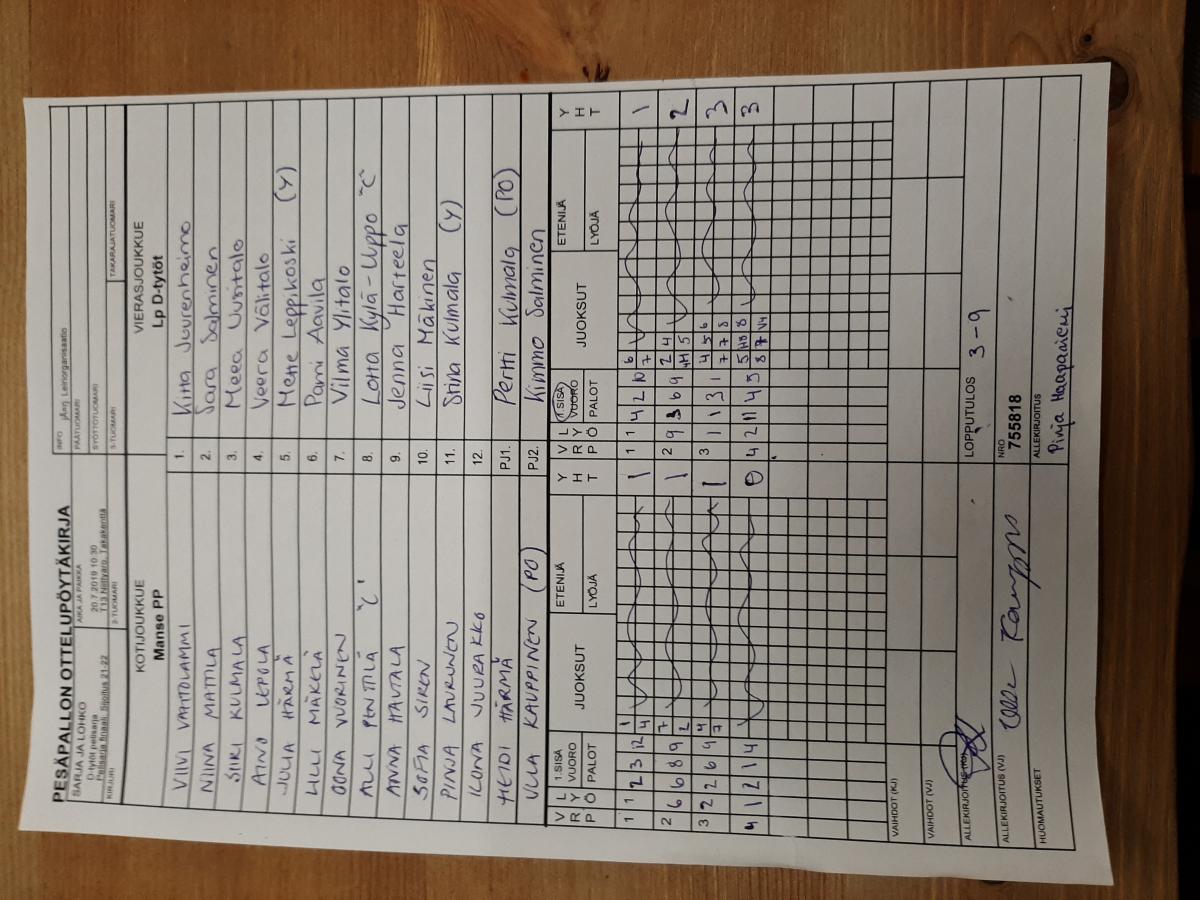 PESÄPALLON OTTELUPÖYTÄKIRJA
SARJA JA LOHKO
D-tytöt pelisarja
Pelisarja finaali, Sijoitus 21-22
AIKA JA PAIKKA
20.7.2019 10:30
T13 Niittyaro, Takakenttä
INFO
PÄÄTUOMARI
SYÖTTÖTUOMARI
KIRJURI
2-TUOMARI
3-TUOMARI
TAKARAJATUOMARI
KOTIJOUKKUE
Manse PP
VIERASJOUKKUE
Lp D-tytöt
VIIVI VAHTOLAMMI 1. Kitta Juurenheimo
NIINA MATTILA 2. Sara Salminen
SIIRI KULMALA 3. Meea Uusitalo
AINO LEPOLA 4. Veera Välitalo
JULIA HÄRMÄ 5. Mette Leppikoski (Y)
LILLI MÄKELÄ 6. Pami Aavila
OONA VUORINEN 7. Vilma Ylitalo
ALLI PENTTILÄ "C" 8. Lotta Kylä-Uuppo "C"
ANNA HAUTALA 9. Jenna Harteela
SOFIA SIREN 10. Liisi Mäkinen
PINJA LAURUNEN 11. Stina Kulmala (Y)
ILONA JUURAKKO 12.
HEIDI HÄRMÄ PJ1. Pertti Kulmala (PO)
ULLA KAUPPINEN (PO) PJ2. Kimmo Salminen
VRP LYÖ 1.SISÄVUORO PALOT JUOKSUT ETENIJÄ LYÖJÄ YHT VRP LYÖ 1.SISÄVUORO PALOT JUOKSUT ETENIJÄ LYÖJÄ YHT
1 1 2 3 12 1 4 1 1 1 4 2 10 6 7 1
2 6 6 8 9 7 2 1 2 9 3 6 9 2 4 4H 5 2
3 2 2 6 9 4 7 1 3 1 1 3 1 4 5 6 7 7 8 3
4 1 2 1 4 0 4 2 11 4 5 5 H8 8 8 7 V4 3
VAIHDOT (KJ)
VAIHDOT (VJ)
ALLEKIRJOITUS (KJ)
LOPPUTULOS 3-9
ALLEKIRJOITUS (VJ)
NRO
755818
HUOMAUTUKSET
ALLEKIRJOITUS
Pinja Haapaniemi